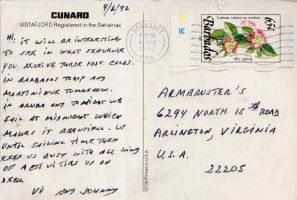 CUNARD 4/6/92
VISTAFJORD Registered in the Bahamas
HI: IT WILL BE INTERESTING
TO SEE IN WHAT
YOU RECEIVE THESE POST CARDS.
IN BARBADOS TODAY AND
MARTINIQUE TOMORROW.
IN AND TONIGHT WE
SAIL AT MIDNIGHT WHICH
MAKES IT BEAUTIFUL. WE
UNTIL SAILING TIME THEY
KEEP US BUSY WITH ALL KINDS
OF ACTIVITIES US ON
JOHNNY
BARBADOS
Barbados
65¢
ARMBRUSTER'S
6294 NORTH 15TH ROAD
ARLINGTON, VIRGINIA
U.S.A.
22205